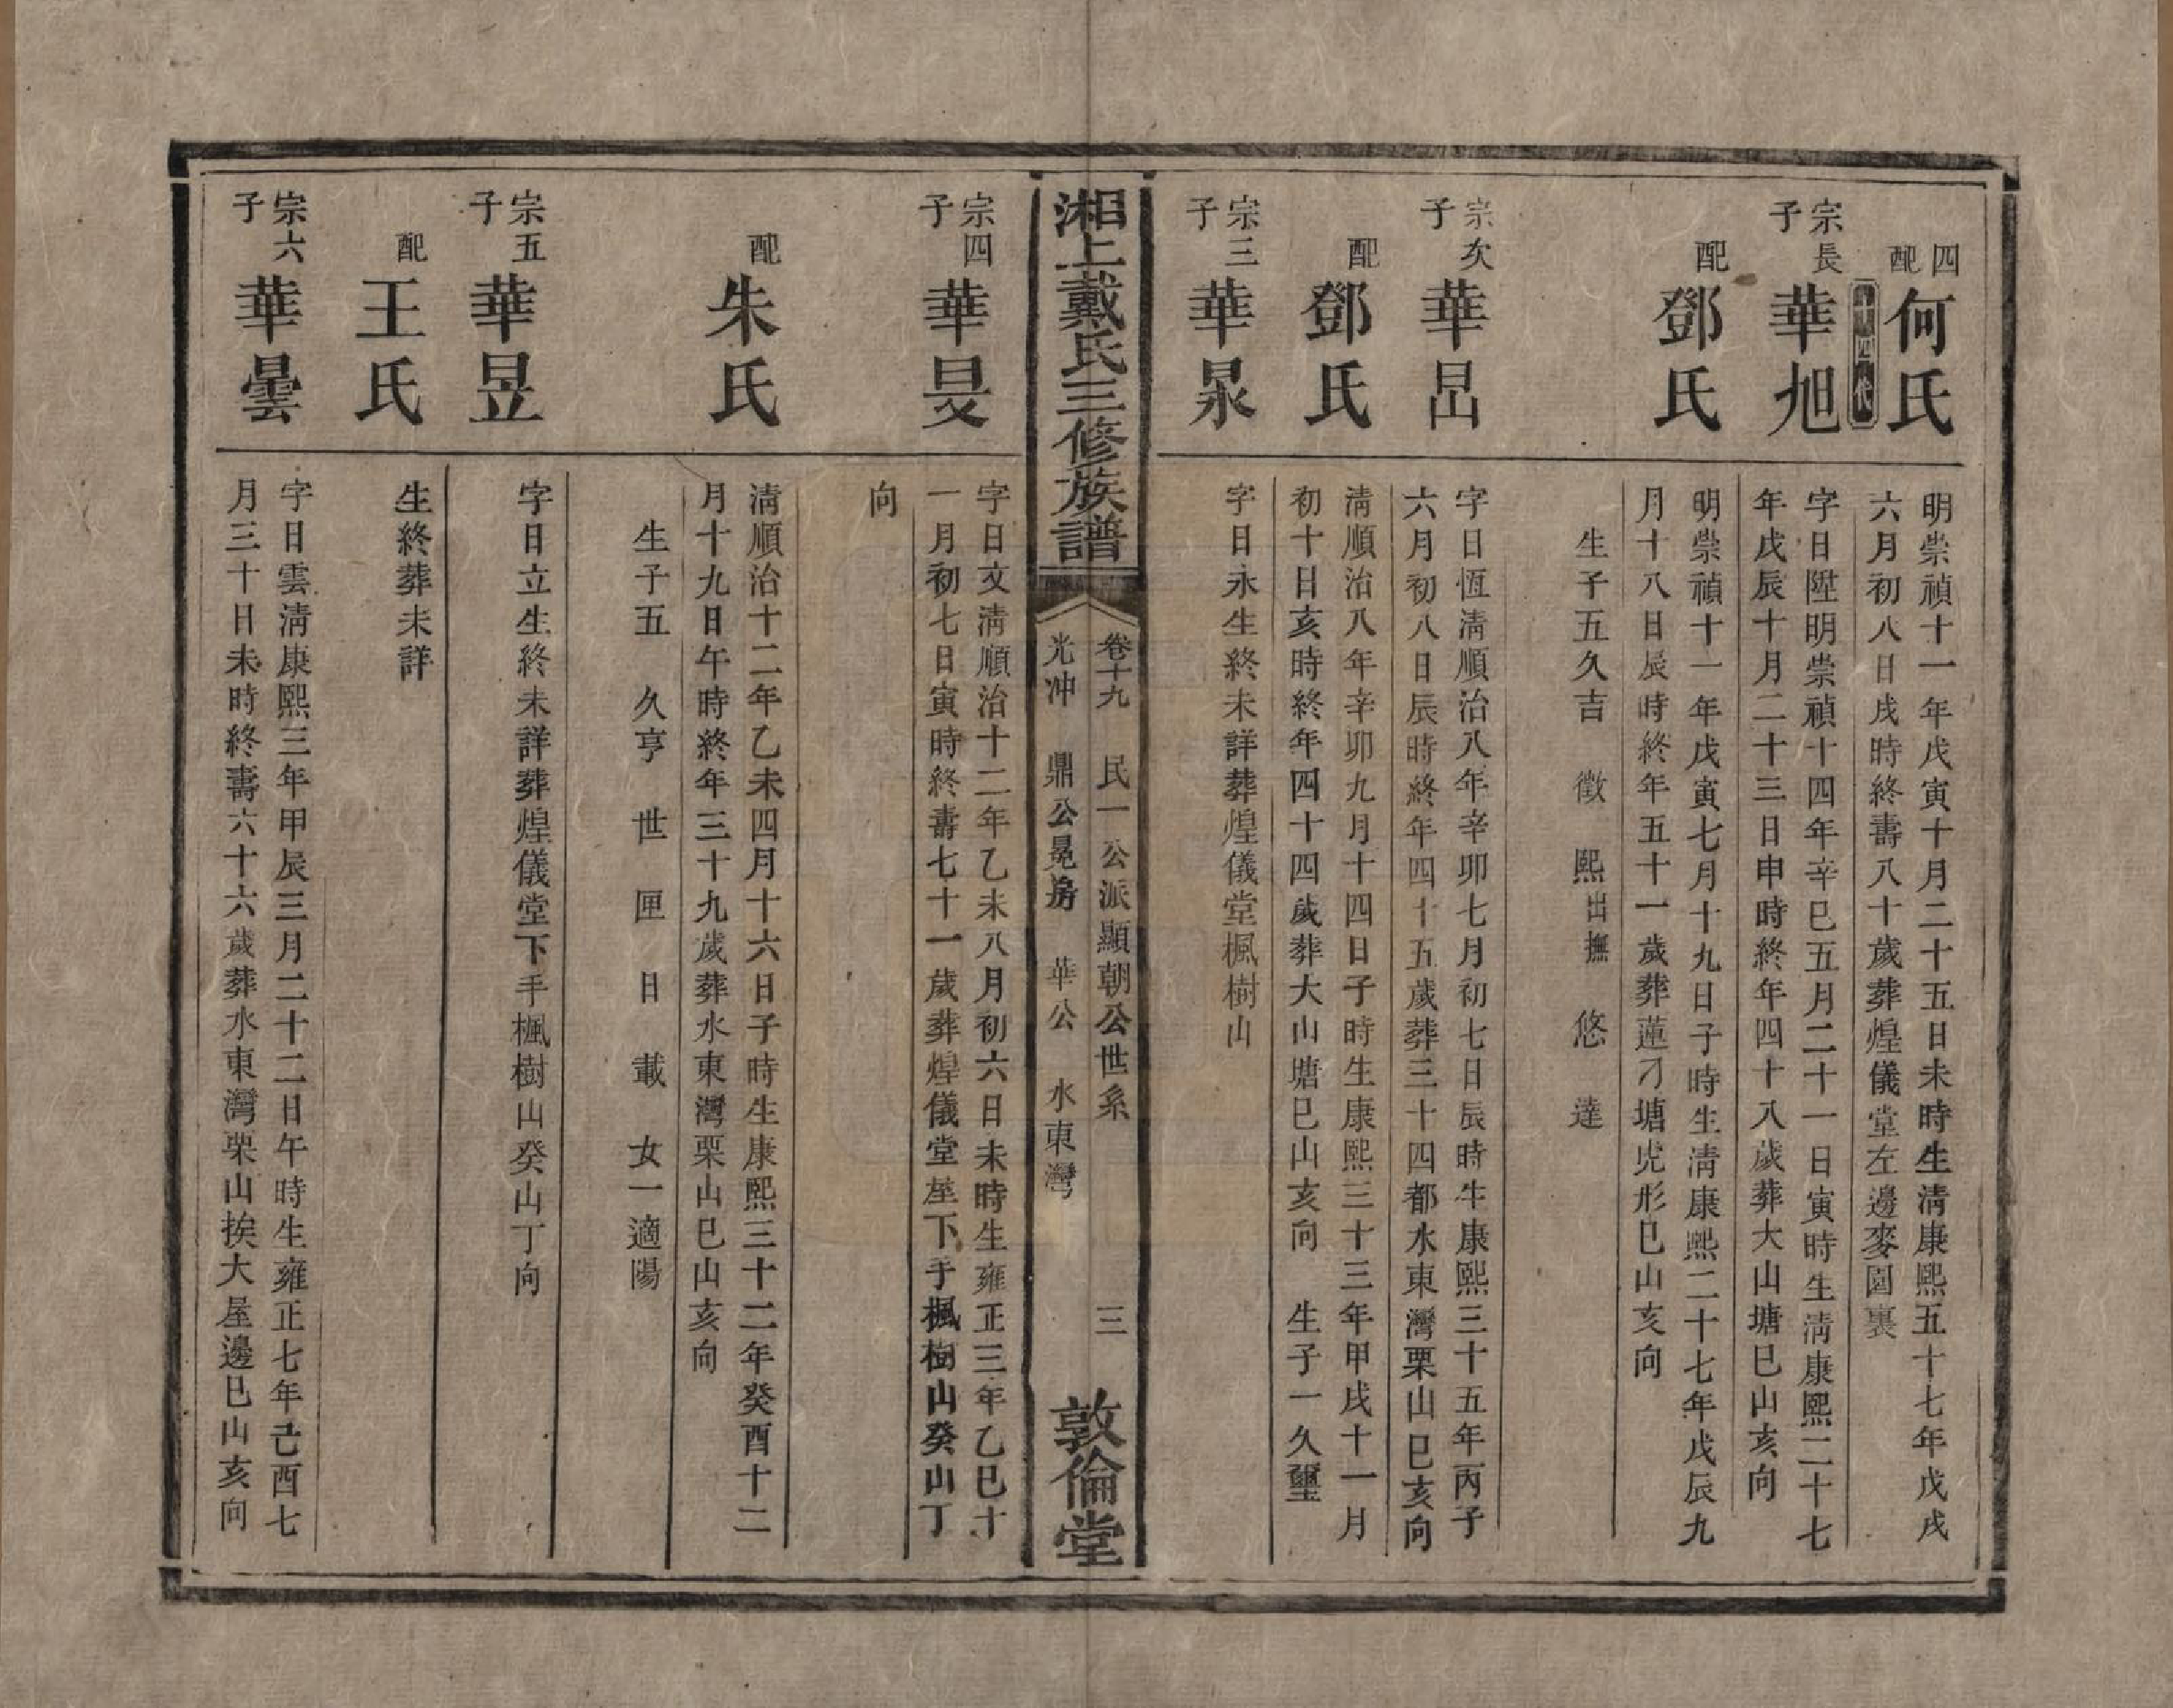 四配 何氏
明崇禎十一年戊寅十月二十五日未時生清康熙五十七年戊戌
六月初八日戌時終壽八十歲葬煌儀堂左邊麥園裏
十四代
宗長子 華旭
字日陞明崇禎十四年辛巳五月二十一日寅時生清康熙二十七
年戊辰十月二十三日申時終年四十八歲葬大山塘巳山亥向
配 鄧氏
明崇禎十一年戊寅七月十九日子時生清康熙二十七年戊辰九
月十八日辰時終年五十一歲葬蓮刁塘虎形巳山亥向
生子五久吉 徵 熙出撫 悠 達
宗次子 華昌
字日恆清順治八年辛卯七月初七日辰時生康熙三十五年丙子
六月初八日辰時終年四十五歲葬三十四都水東灣栗山巳亥向
配 鄧氏
清順治八年辛卯九月十四日子時生康熙三十三年甲戌十一月
初十日亥時終年四十四歲葬大山塘巳山亥向 生子一久璽
宗三子 華泉
字日永生終未詳葬煌儀堂楓樹山
湘上戴氏三修族譜
卷十九 民一公派顯朝公世系 三
光沖 鼎公晃房 華公 水東灣
敦倫堂
宗四子 華旻
字日文清順治十二年乙未八月初六日未時生雍正三年乙巳十
一月初七日寅時終壽七十一歲葬煌儀堂垤下手楓樹山癸山丁
向
配 朱氏
清順治十二年乙未四月十六日子時生康熙三十二年癸酉十二
月十九日午時終年三十九歲葬水東灣栗山巳山亥向
生子五 久亨 世 匣 日 載 女一適陽
宗五子 華昱
字日立生終未詳葬煌儀堂下手楓樹山癸山丁向
配 王氏
生終葬未詳
宗六子 華曇
字日雲清康熙三年甲辰三月二十二日午時生雍正七年己酉七
月三十日未時終壽六十六歲葬水東灣栗山挨大屋邊巳山亥向